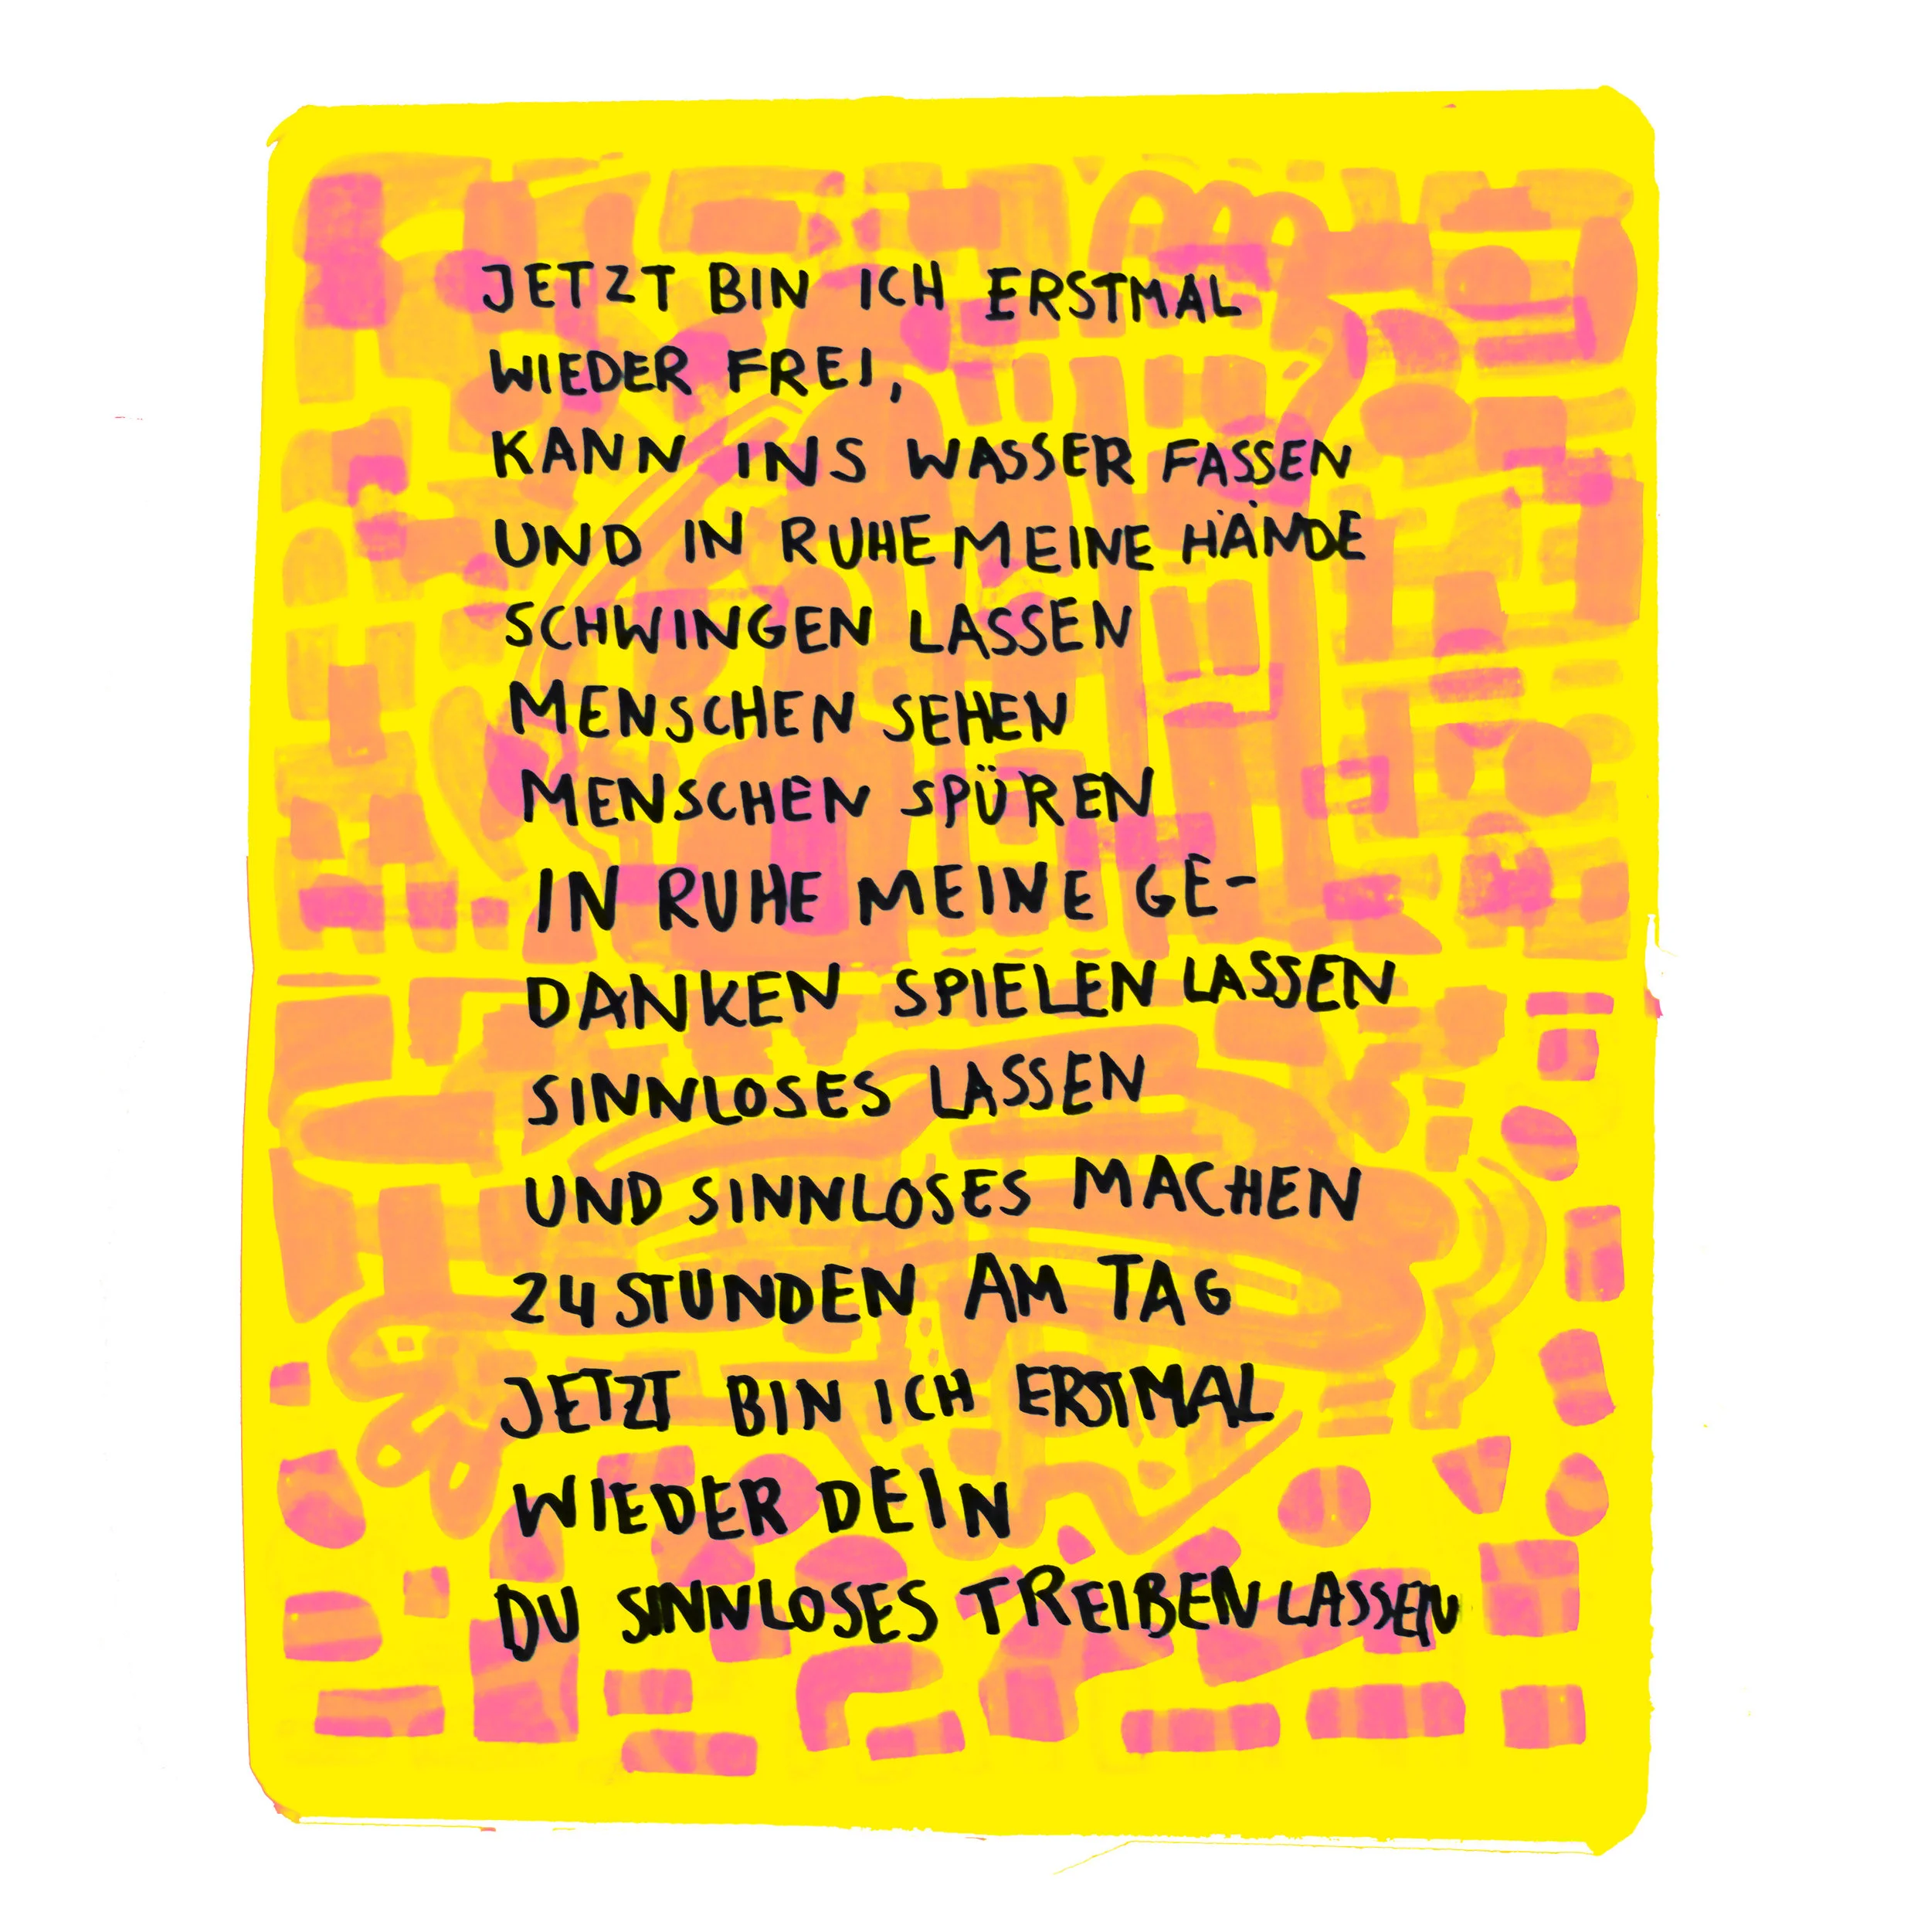 JETZT BIN ICH ERSTMAL
WIEDER FREI,
KANN INS WASSER FASSEN
UND IN RUHE MEINE HÄNDE
SCHWINGEN LASSEN
MENSCHEN SEHEN
MENSCHEN SPÜREN
IN RUHE MEINE GE-
DANKEN SPIELEN LASSEN
SINNLOSES LASSEN
UND SINNLOSES MACHEN
24 STUNDEN AM TAG
JETZT BIN ICH ERSTMAL
WIEDER DEIN
DU SINNLOSES TREIBEN LASSEN